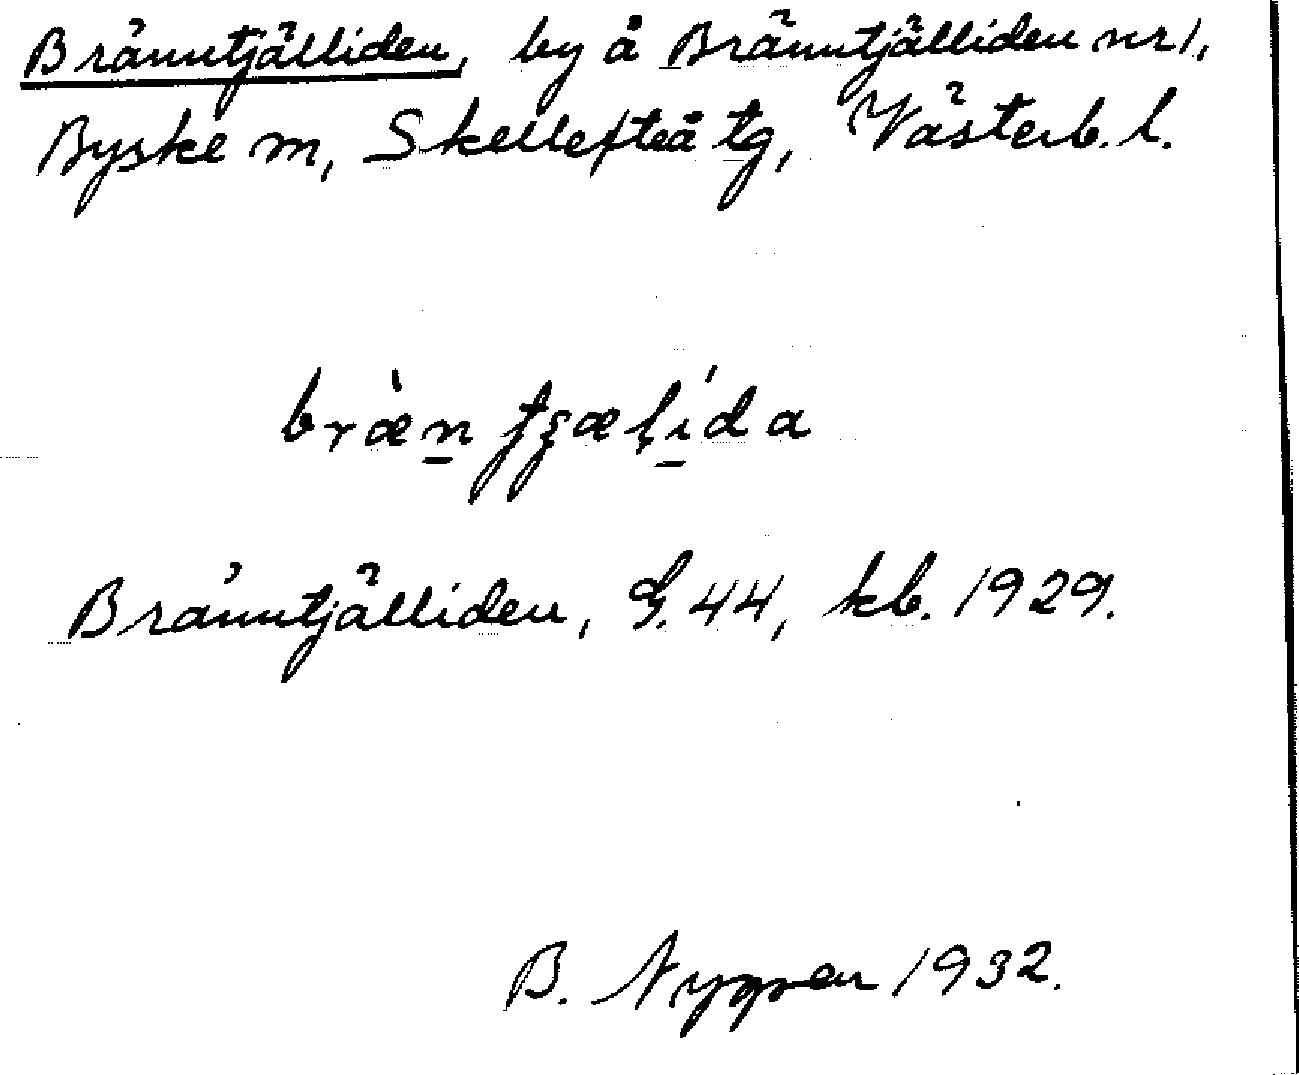 Bränntjälliden, by å Bränntjälliden nr 1,
Byske m, Skellefteå tg, Västerb. l.
Bränntjälliden, G. 44, kb. 1929.
B. Nygren 1932.